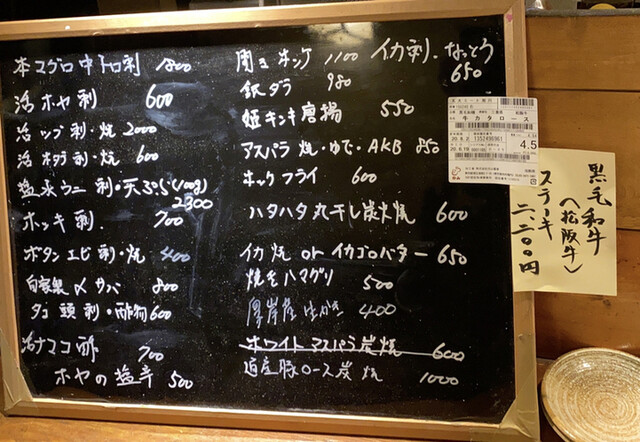 本マグロ中トロ刺 1800
活ホヤ刺 600
活ツブ刺・焼 2000
活ホタテ刺・焼 600
塩水ウニ刺・天ぷら(100g) 2300
ホッキ刺 700
ボタンエビ刺・焼 400
自家製〆サバ 800
タコ頭刺・酢物 600
活ナマコ酢 700
ホヤの塩辛 500
開きホッケ 1100
イカ刺・なっとう 650
銀ダラ 980
姫キンキ唐揚 550
アスパラ焼・ゆで・AKB 850
ホッケフライ 600
ハタハタ丸干し炭火焼 600
イカ焼 or イカゴロバター 650
焼きハマグリ 500
厚岸産生かき 400
ホワイトアスパラ炭焼 600
道産豚ロース炭焼 1000
牛カタロース
1352498961
4.5
黒毛和牛
(松阪牛)
ステーキ
二、二〇〇円